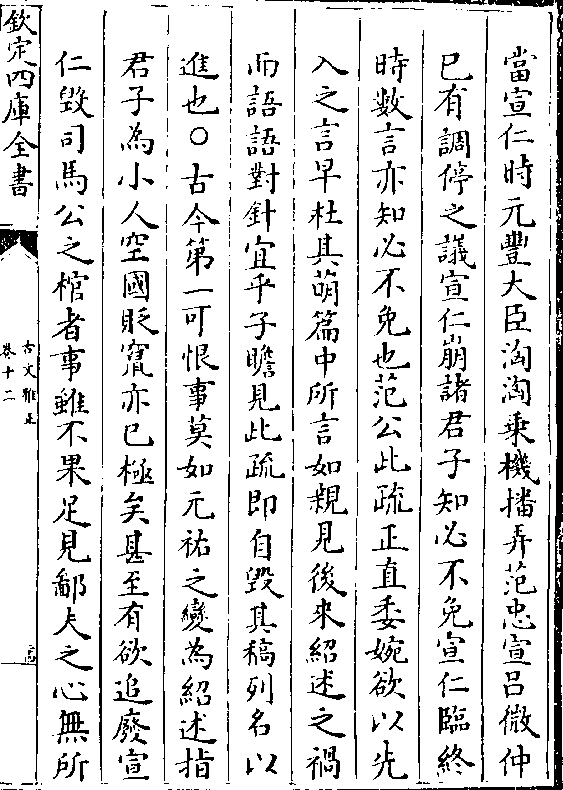 當宣仁時元豐大臣洶洶乗機播弄范忠宣吕微仲
已有調停之議宣仁崩諸君子知必不免宣仁臨終
時數言亦知必不免也范公此疏正直委婉欲以先
入之言早杜其萌篇中所言如親見後來紹述之禍
而語語對針宜乎子瞻見此疏即自毁其稿列名以
進也○古今第一可恨事莫如元祐之變為紹述指
君子為小人空國貶竄亦已極矣甚至有欲追廢宣
仁毁司馬公之棺者事雖不果足見鄙夫之心無所
欽定四庫全書
古文雅正
卷十二